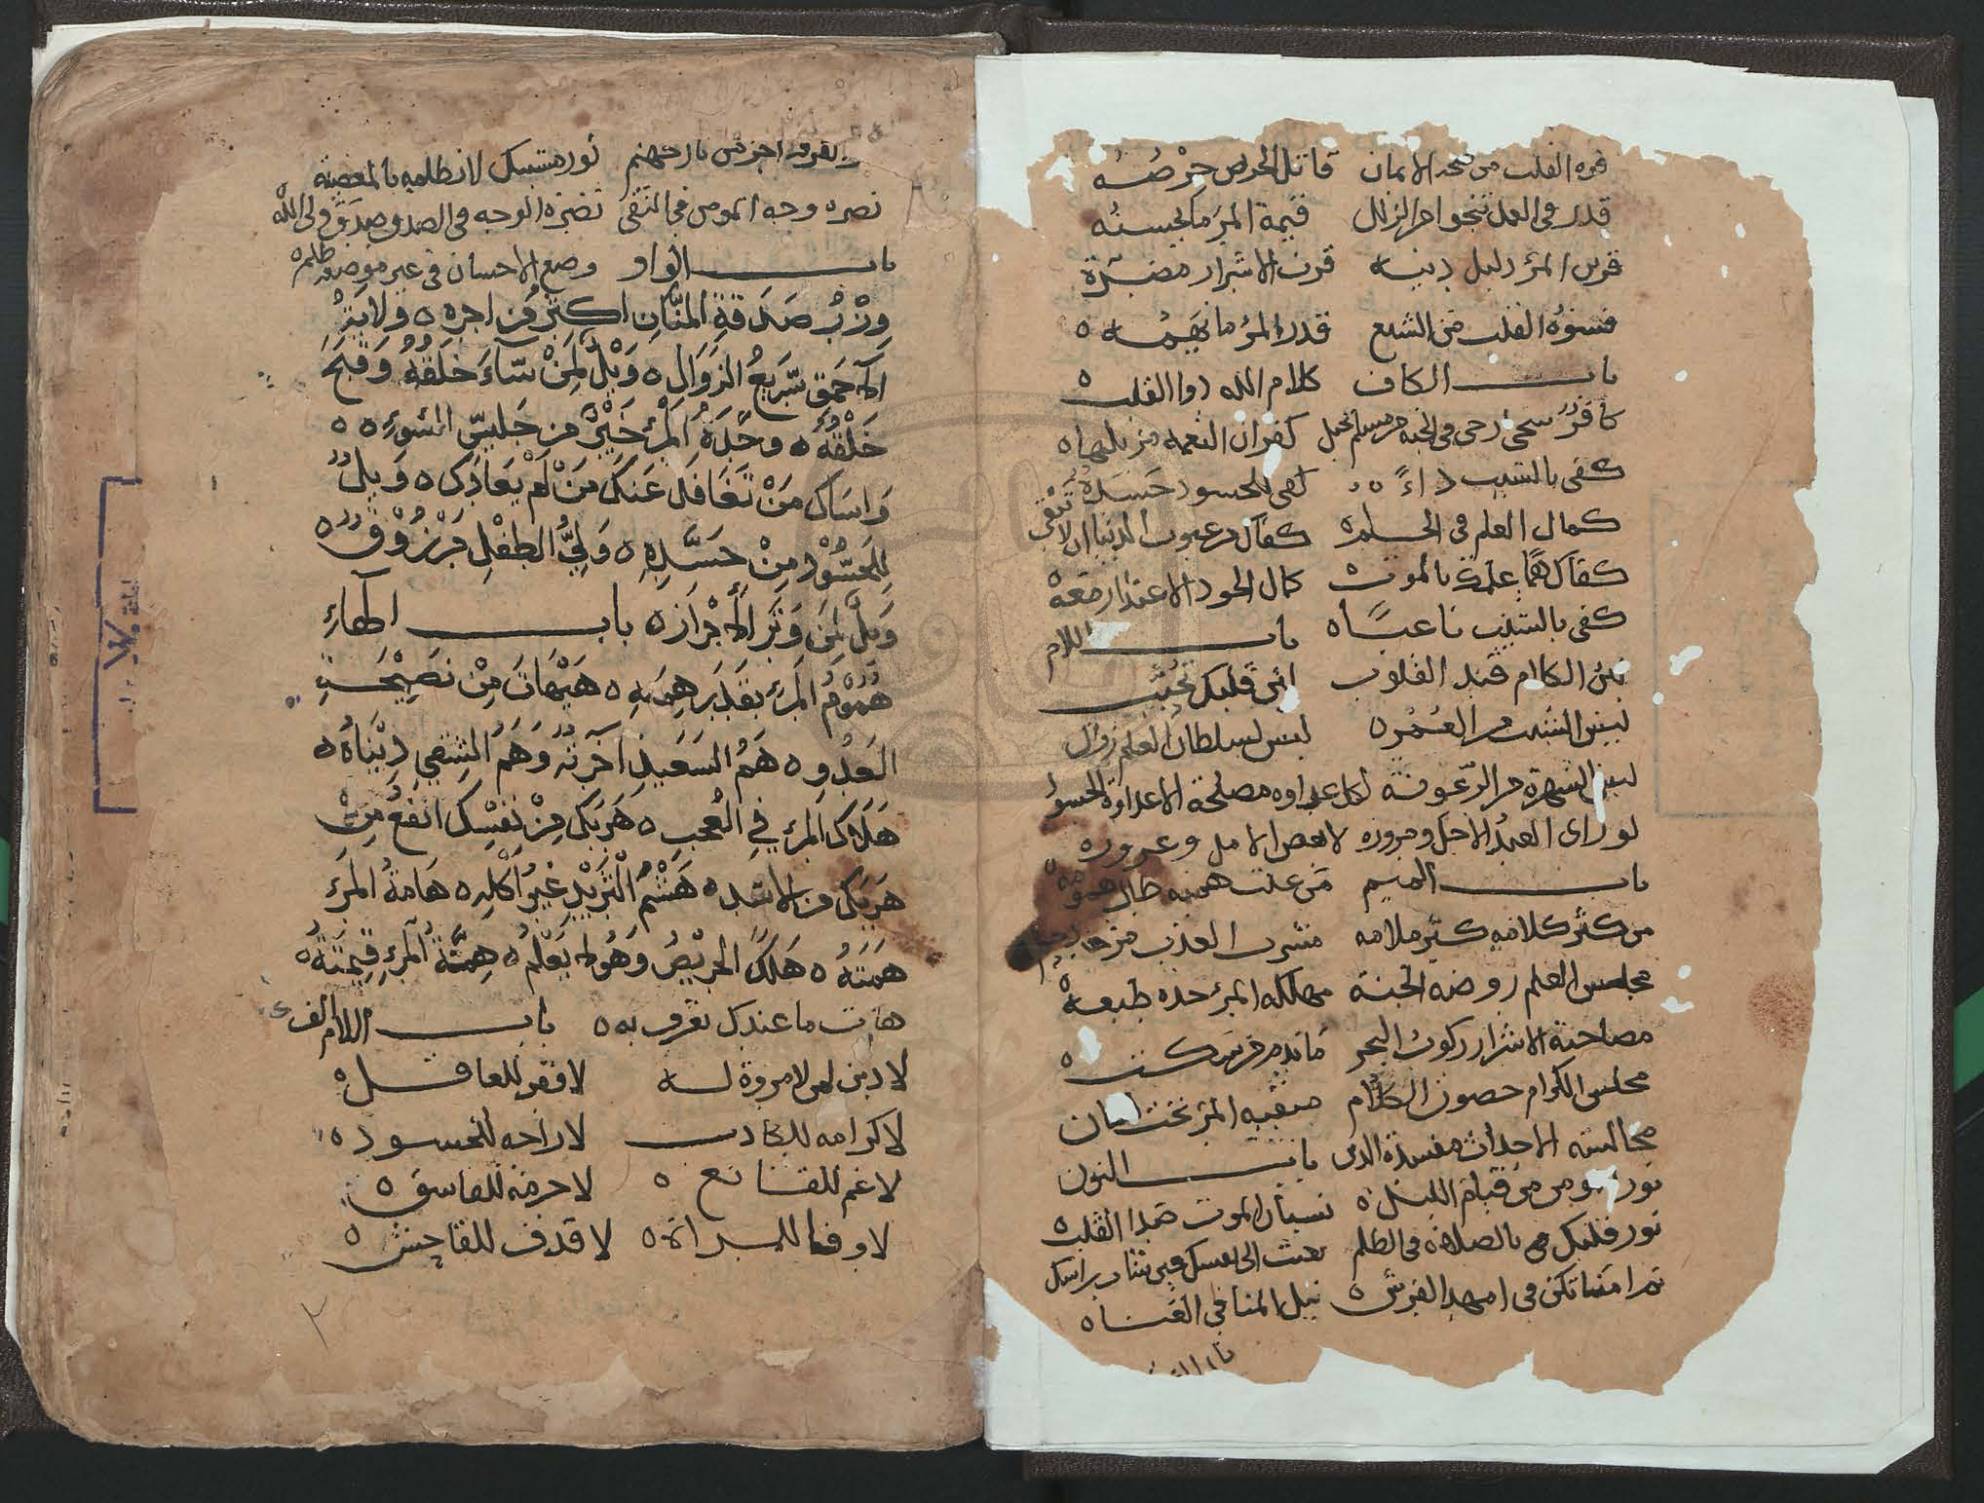 قوة القلب من صحة الايمان قاتل الحريص حرصه
قدر في العمل تنجوا من الزلل قيمة المرء ما يحسنه
قرين المرء دليل دينه قرب الاشرار مضرة
قسوة القلب من الشبع قدر المرء ما يهمه
باب الكاف كلام الله دوا القلب
كافر سخي ارجى في الجنة من مسلم بخيل كفران النعمة مزيلها
كفى بالشيب داءً كفى للحسود حسده
كمال العلم في الحلم كفاك من عيوب الدنيا ان لا تبقى
كفاك همًا علمك بالموت كمال الجود الاعتذار معه
كفى بالشيب ناعيًا باب اللام
لين الكلام قيد القلوب الن قلبك تحبب
ليس الشيب من العمر ليس لسلطان العلم زوال
ليس الشهرة من الرعونة لكل عداوه مصلحة الا عداوة الحسود
لو راى العبد الاجل ومروره لابغض الامل وغروره
باب الميم من علت همته طال همومه
من كثر كلامه كثر ملامه مشرب العذب مزدحم
مجلس العلم روضه الجنة مهلكه المرء حده طبعه
مصاحبة الاشرار ركوب البحر ما ندم من سكت
مجلس الكرام حصون الكلام منقبه المرء تحت لسان
مجالسة الاحداث مفسدة الدين باب النون
نور المومن من قيام الليل نسيان الموت صدا القلب
نور قلبك بالصلاة في الظلم نعيت الى نفسك حين شاب راسك
نم امنا تكن في امهد الفرش نيل المنا في الغنا
نار الفرقة احر من نار جهنم نور مشيبك لا تظلمه بالمعصية
نضرة وجه المومن في التقى نضرة الوجه في الصدق صدق ولى الله
باب الواو وضع الاحسان في غير موضعه ظلم
وِزْرُ صَدَقةِ المنّانِ اكثر من اجره ولاية
الاحمق سريع الزوال ويل لمن ساء خلقه وقبح
خلقه وحدة المرء خير من جليس السوء
واساك من تغافل عنك من لم يعادك ويل
للحسود من حسده ولي الطفل مرزوق
ويل لمن وتر الاحرار باب الهاء
هموم المرء بقدر همته هيهات من نصيحة
العدو هم السعيد اخرته وهم الشقي دنياه
هلاك المرء في العجب هربك من نفسك انفع من
هربك من الاسد هشم الثريد غير اكله هامة المرء
همته هلك الحريص وهو لا يعلم همة المرء قيمته
هات ما عندك تعرف به باب اللام الف
لا دين لمن لا مروة له لا فقر للعاقل
لا كرامه للكاذب لا راحه للحسود
لا غم للقانع لا حرمة للفاسق
لا وفا للمراة لا قدف للفاحش